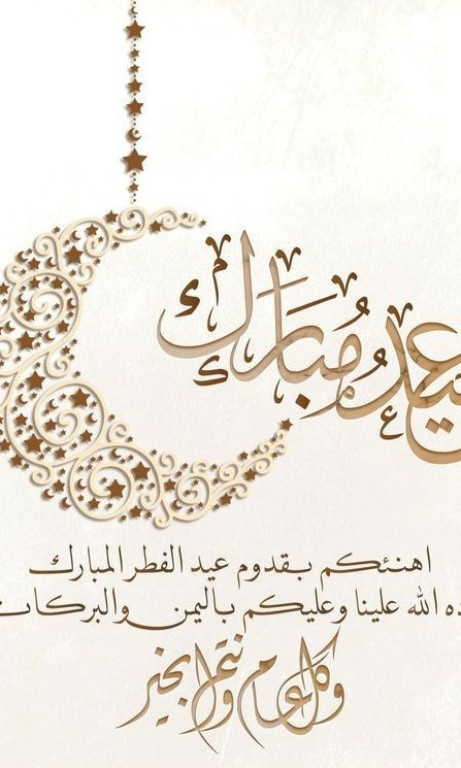 عيد مبارك
اهنئكم بقدوم عيد الفطر المبارك
ده الله علينا وعليكم باليمن والبركات
وكل عام وانتم بخير